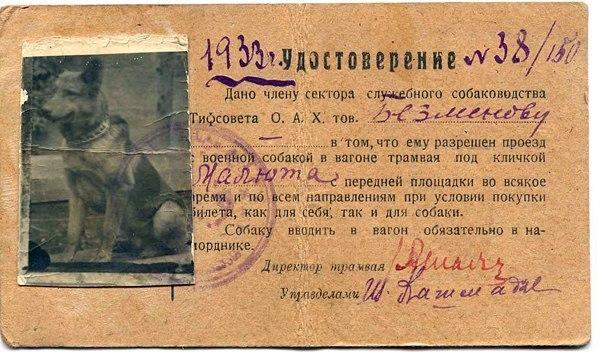 1933 г. Удостоверение № 38/150
Дано члену сектора служебного собаководства
Тифсовета О. А. Х. тов. Безменову
в том, что ему разрешен проезд
с военной собакой в вагоне трамвая под кличкой
Малюта с передней площадки во всякое
время и по всем направлениям при условии покупки
билета, как для себя, так и для собаки.
Собаку вводить в вагон обязательно в на-
морднике.
Директор трамвая
Управделами Ш.